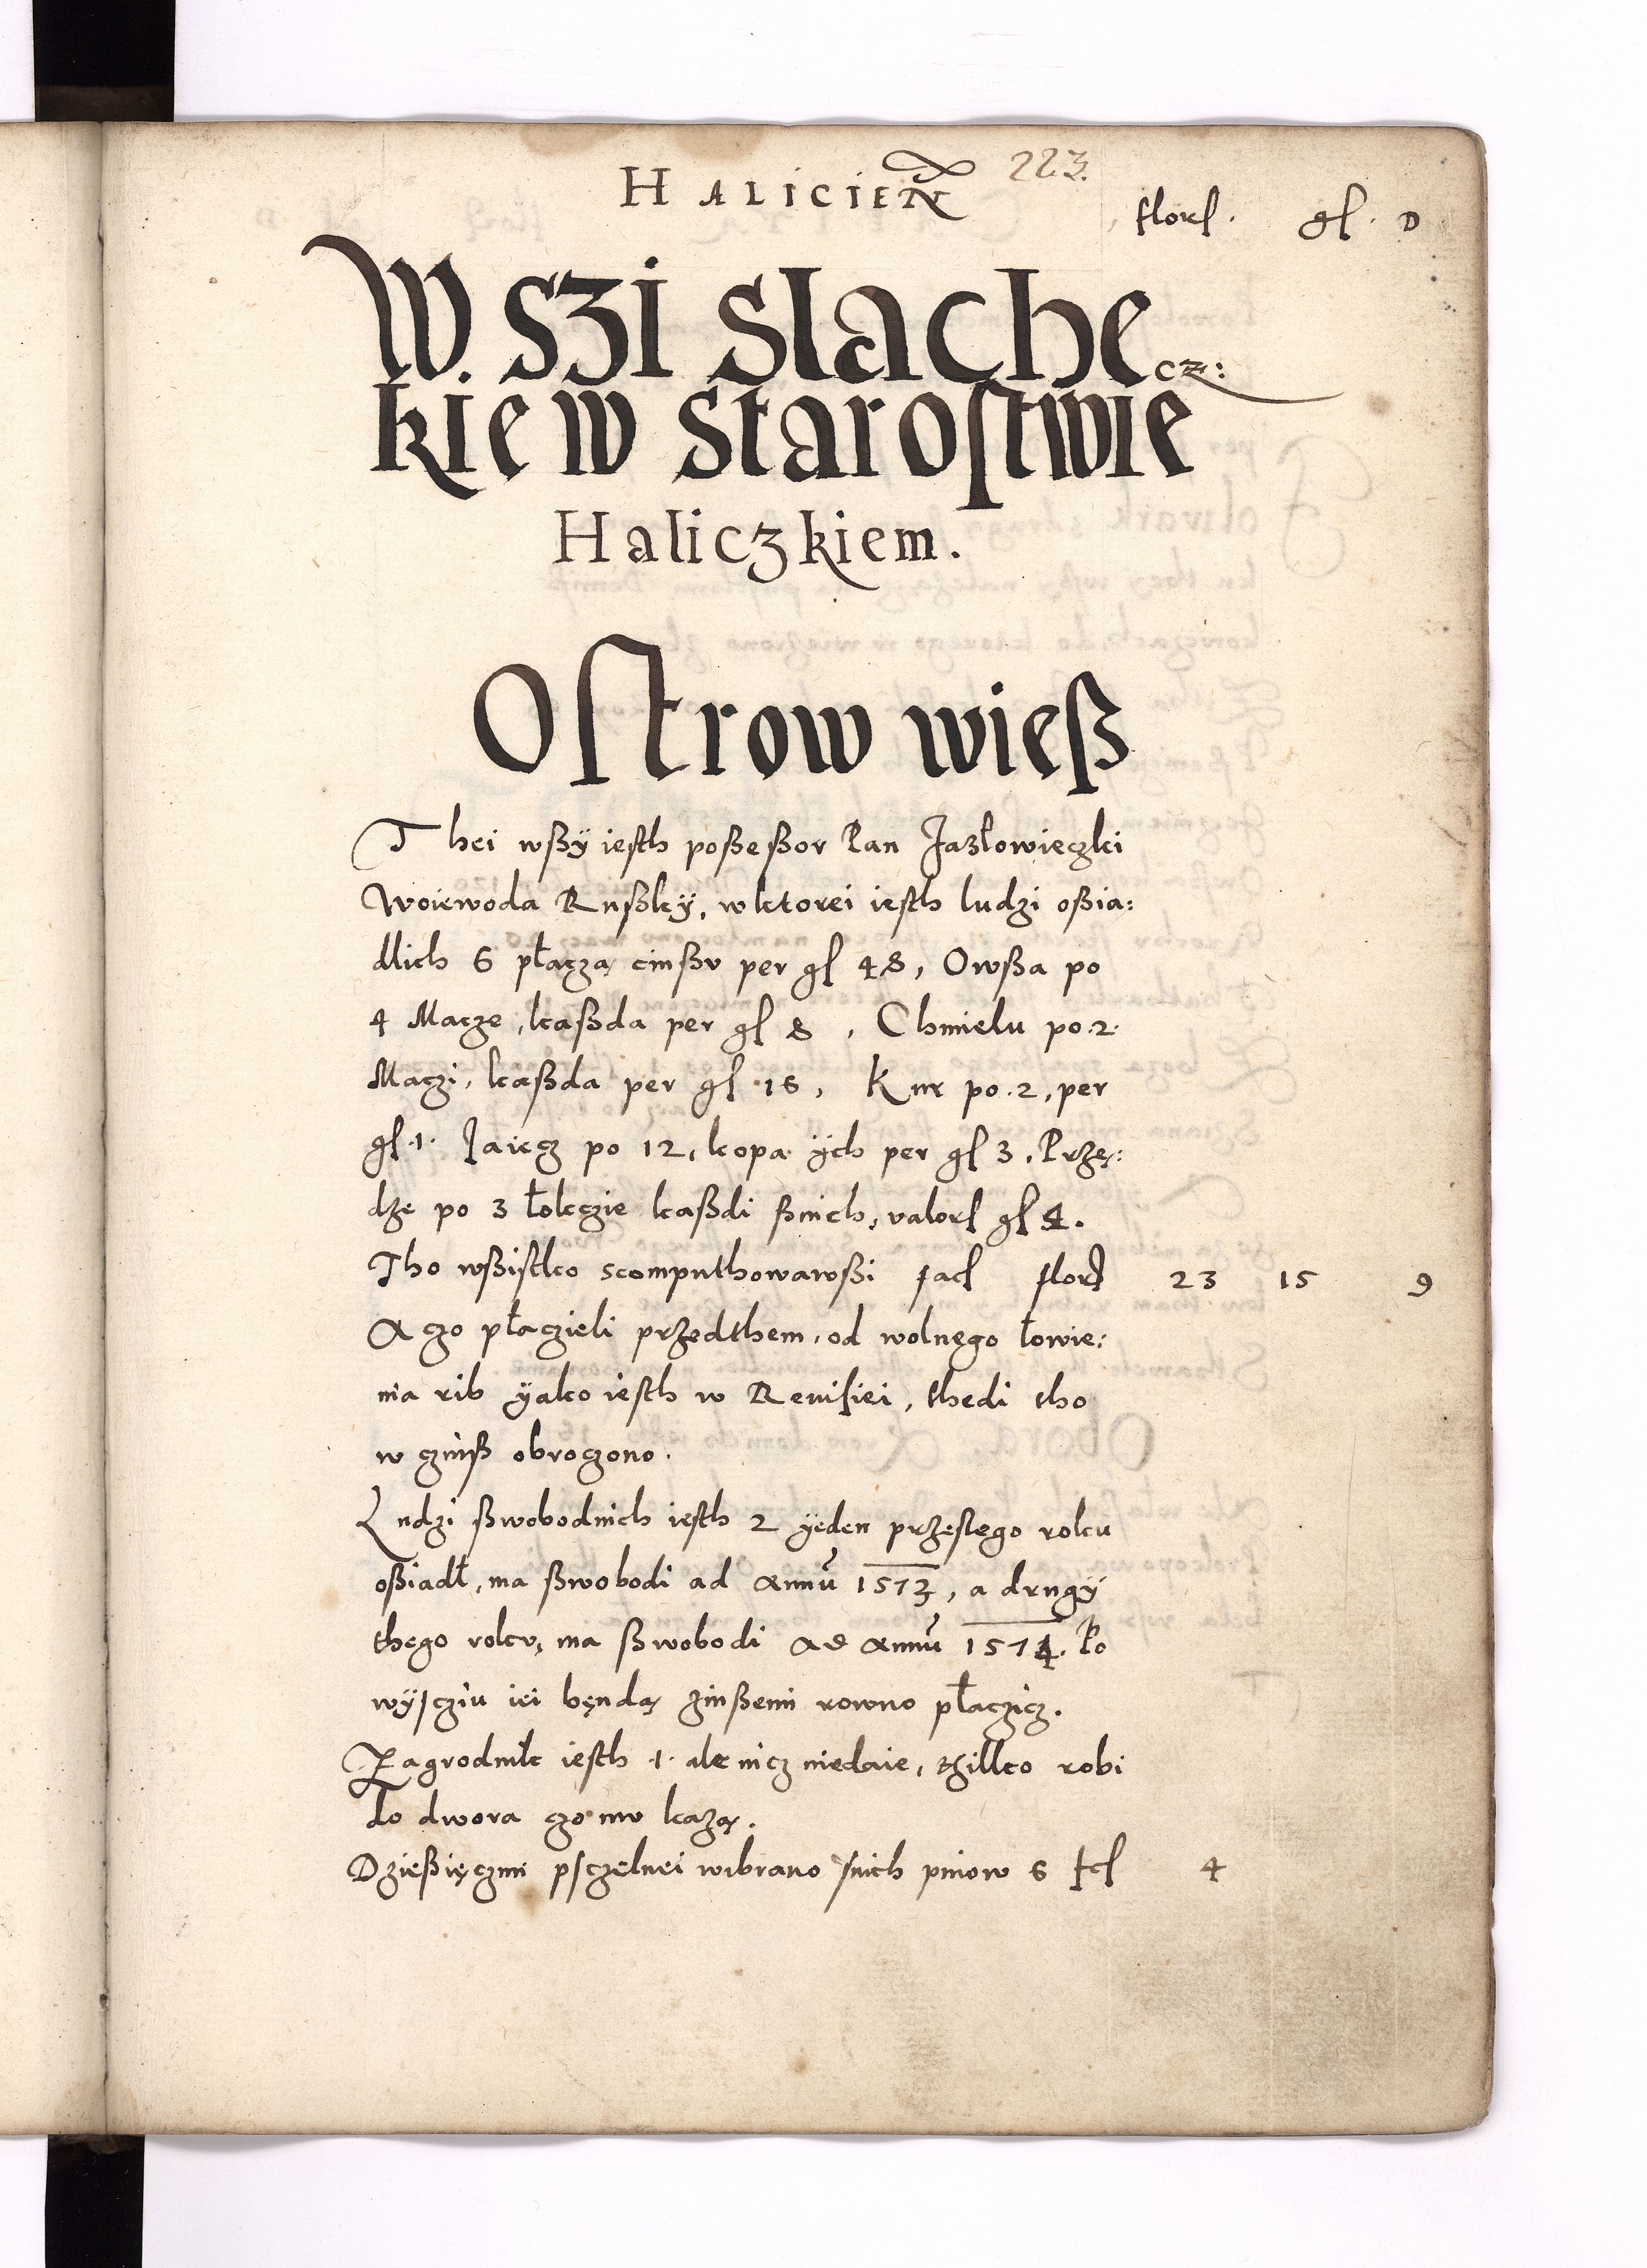 HALICIEN 223.
florſ. gſ. D
W szi slachecz:
kie w staroſtwie
Haliczkiem.
Oſtrow wieß
Thei wßÿ ieſth poßeßor Pan Jazłowieczki
Woiewoda Rußkÿ, w ktorei ieſth ludzi oßia:
dlich 6 płaczą cinßv per gſ 48, Owßa po
4 Macze, kaßda per gſ 8, Chmielu po.2.
Maczi, kaßda per gſ 16, Kur po.2, per
gſ.1. Jaiecz po 12, kopa ÿch per gſ 3. Przę:
dze po 3 łokczie kaßdi ßnich, valorſ gſ 4.
Tho wßiſtko scomputhowawßi facſ florſ 23 15 9
A czo płaczieli przedthem, od wolnego łowie:
nia rib ÿako ieſth w Reuiſiei, thedi tho
w czinß obroczono.
Ludzi ßwobodnich ieſth 2 ÿeden przeſlego roku
oßiadł, ma ßwobodi ad Annū 1573, a drugÿ
thego rokv, ma ßwobodi ad Annū 1574. Po
wÿſcziu iei bęndą zinßemi rowno płaczicz.
Zagrodnik ieſth .1. ale nicz niedaie, thilko robi
do dwora czo mv każą.
Dzießięczini pſczelnei wibrano ſnich pniow 6 fcſ 4